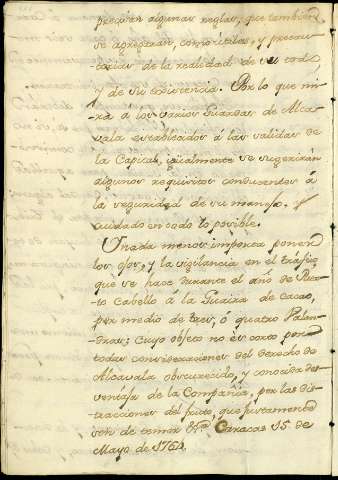 algunas reglas, que tambien
se agregarán, como útiles, y precau-
de la realidad de su
y de su existencia. Por lo que mi-
ra á los varios Guardas de Alca-
vala establecidos á las validas de
la Capital, igualmente se sugerirán
algunos requisitos conducentes á
la seguridad de su manejo. Y
cuidado en todo lo posible.
Y nada menos importa ponen
los ojos, y la vigilancia en el trafico
que se hace durante el año de Puer-
to Cabello á la Guaira de cacao,
por medio de tres, ó quatro Balan-
dras; cuyo objeto no es corto para
todas consideraciones del derecho de
Alcavala obscurecido, y conocida des-
ventaja de la Compañia, por las dis-
tracciones del fruto, que justamente
ven de temor Caracas 15 de
Mayo de 1764